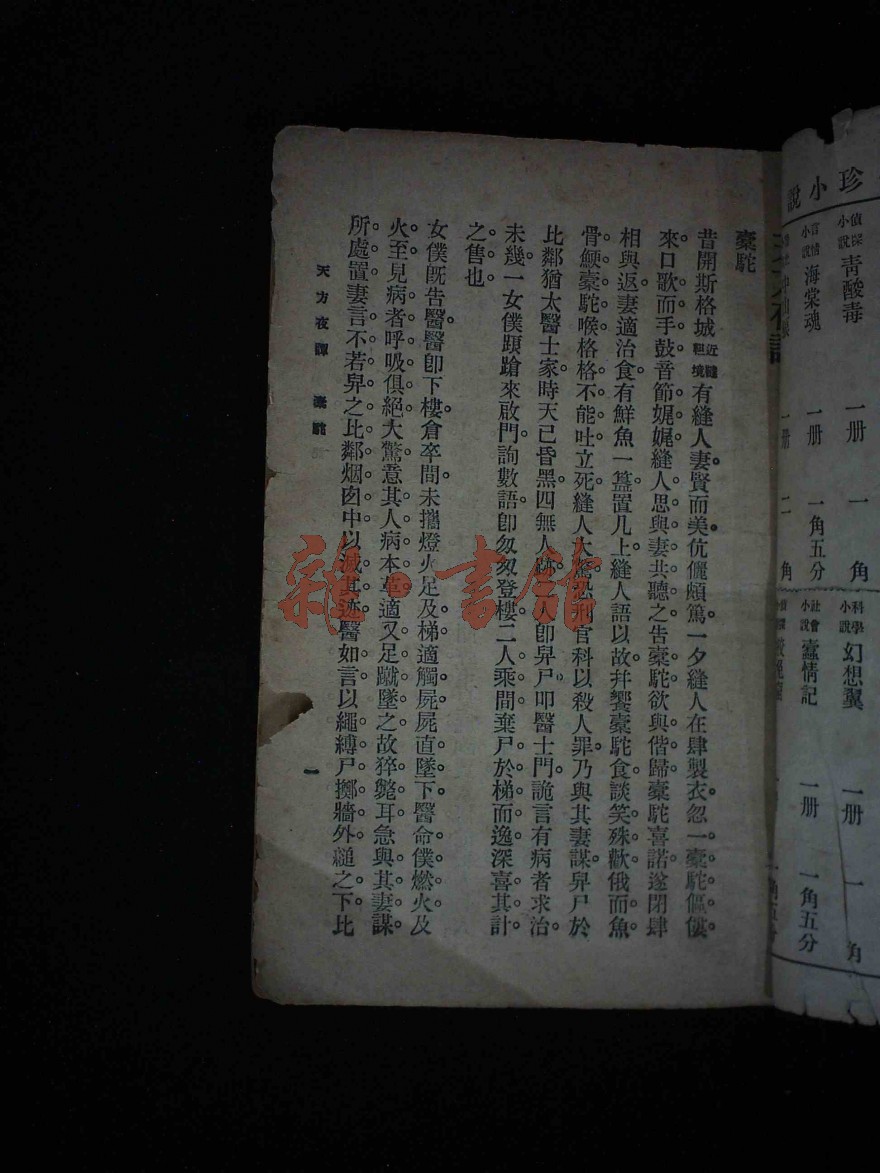 珍小說
偵探小說 青酸毒 一册 一角
言情小說 海棠魂 一册 一角五分
一册 二角
科學小說 幻想翼 一册 一角
社會小說 蠹情記 一册 一角五分
橐駝
昔開斯格城近韃靼境有縫人妻賢而美伉儷頗篤。一夕縫人在肆製衣忽一橐駝傴僂
來口歌而手鼓音節娓娓縫人思與妻共聽之告橐駝欲與偕歸橐駝喜諾遂閉肆
相與返妻適治食有鮮魚一簋置几上縫人語以故幷饗橐駝食談笑殊歡俄而魚
骨鯁橐駝喉格格不能吐立死縫人大驚恐刑官科以殺人罪乃與其妻謀舁尸於
比鄰猶太醫士家時天已昏黑四無人跡。人卽舁尸叩醫士門詭言有病者求治。
未幾一女僕踉蹌來啟門詢數語卽匆匆登樓二人乘間棄尸於梯而逸深喜其計
之售也
女僕旣告醫醫卽下樓倉卒間未攜燈火足及梯適觸屍屍直墜下醫命僕燃火及
火至見病者呼吸俱絕大驚意其人病本革適又足蹴墜之故猝斃耳急與其妻謀
所處置妻言不若舁之比鄰烟囱中以滅其迹醫如言以繩縛尸擲牆外縋之下比
天方夜譚 橐駝
一
雜·書館